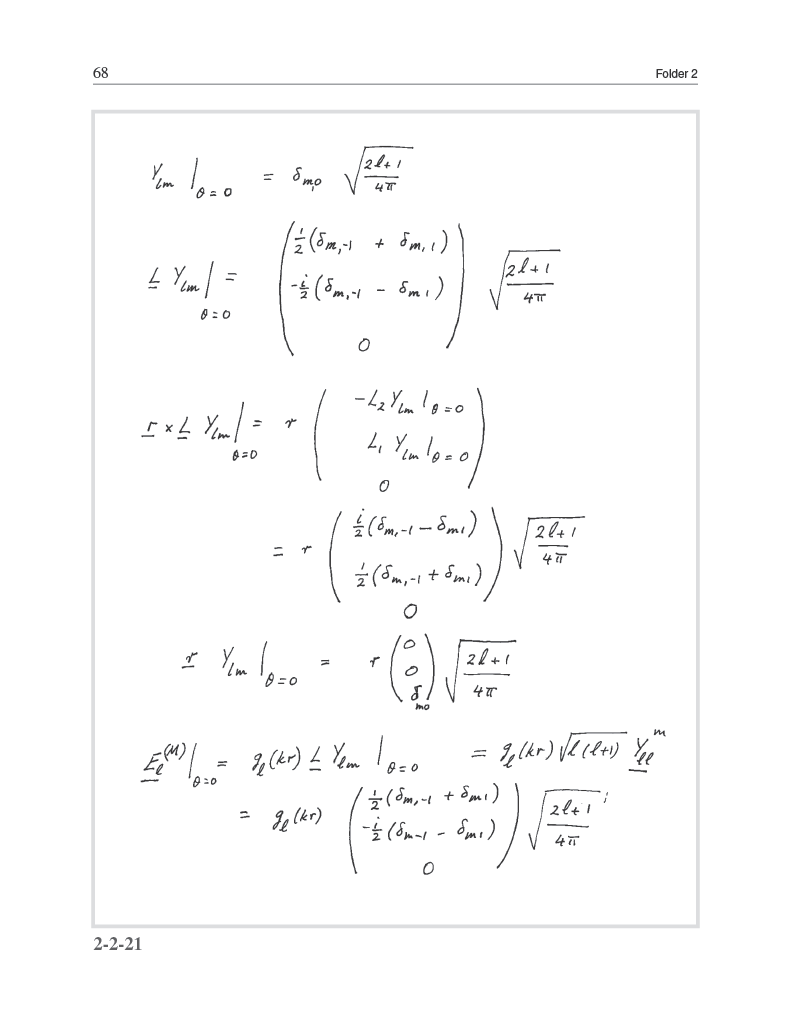 68 Folder 2
Y_{lm} |_{θ=0} = δ_{m,0} √((2l+1)/(4π))
L Y_{lm} |_{θ=0} = ( ½(δ_{m,-1} + δ_{m,1}) ; -i/2(δ_{m,-1} - δ_{m1}) ; 0 ) √((2l+1)/(4π))
r × L Y_{lm} |_{θ=0} = r ( -L_2 Y_{lm} |_{θ=0} ; L_1 Y_{lm} |_{θ=0} ; 0 )
= r ( i/2(δ_{m,-1} - δ_{m1}) ; ½(δ_{m,-1} + δ_{m1}) ; 0 ) √((2l+1)/(4π))
r Y_{lm} |_{θ=0} = r ( 0 ; 0 ; δ_{m0} ) √((2l+1)/(4π))
E_l^{(M)} |_{θ=0} = g_l(kr) L Y_{lm} |_{θ=0} = g_l(kr) √(l(l+1)) Y_{ll}^m
= g_l(kr) ( ½(δ_{m,-1} + δ_{m1}) ; -i/2(δ_{m-1} - δ_{m1}) ; 0 ) √((2l+1)/(4π))
2-2-21